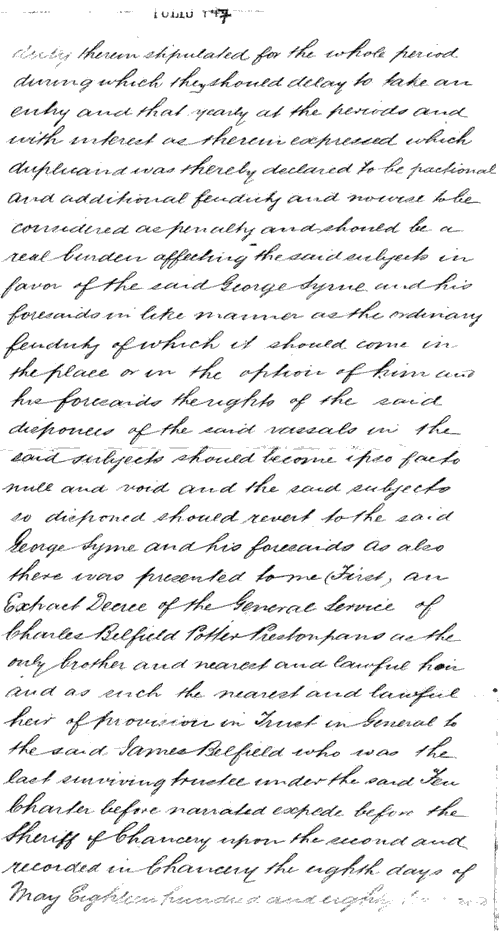 FOLIO 447
duty therein stipulated for the whole period
during which they should delay to take an
entry and that yearly at the periods and
with interest as therein expressed which
duplicand was thereby declared to be pactional
and additional feuduty and nowise to be
considered as penalty and should be a
real burden affecting the said subjects in
favor of the said George Syme and his
foresaids in like manner as the ordinary
feuduty of which it should come in
the place or in the option of him and
his foresaids the rights of the said
disponees of the said vassals in the
said subjects should become ipso facto
null and void and the said subjects
so disponed should revert to the said
George Syme and his foresaids as also
there was presented to me (First) an
Extract Decree of the General Service of
Charles Belfield Potter Prestonpans as the
only brother and nearest and lawful heir
and as such the nearest and lawful
heir of provision in Trust in General to
the said James Belfield who was the
last surviving trustee under the said Feu
Charter before narrated expede before the
Sheriff of Chancery upon the second and
recorded in Chancery the eighth days of
May Eighteen hundred and eighty